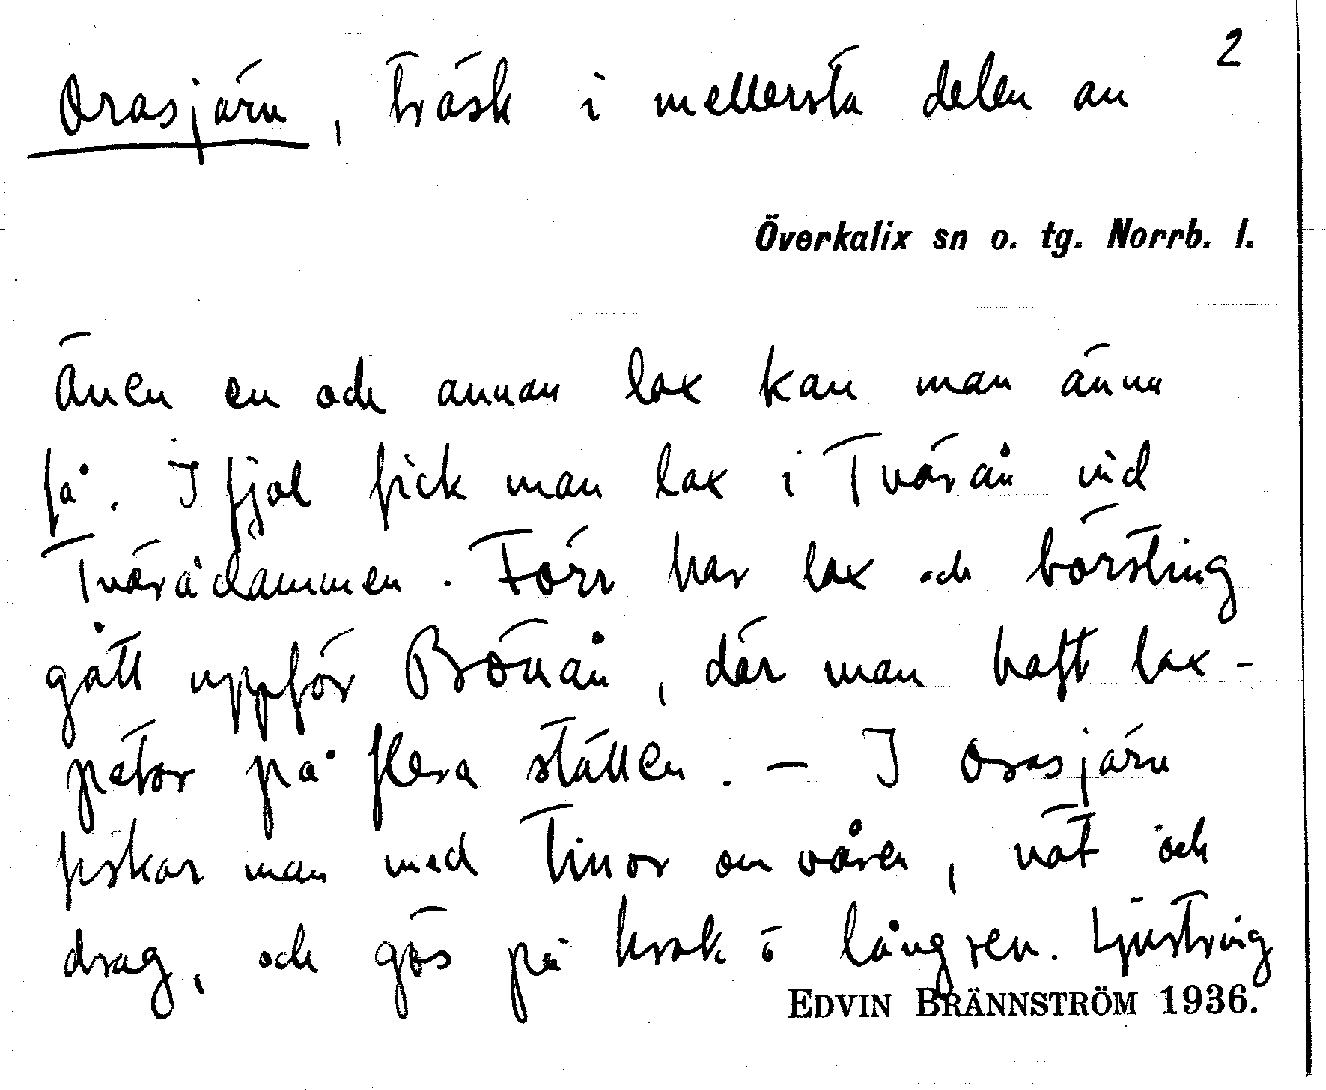 2
Orasjärv, träsk i mellersta delen av
Överkalix sn o. tg. Norrb. l.
Även en och annan lax kan man ännu
få. I fjol fick man lax i Tvärån vid
Tväråдammen. Förr har lax och börsting
gått uppför Brönån, där man haft lax-
pator på flera ställen. – I Orasjärv
fiskar man med tinor om våren, nät och
drag, och gös på krok o långrev. Ljustring
EDVIN BRÄNNSTRÖM 1936.